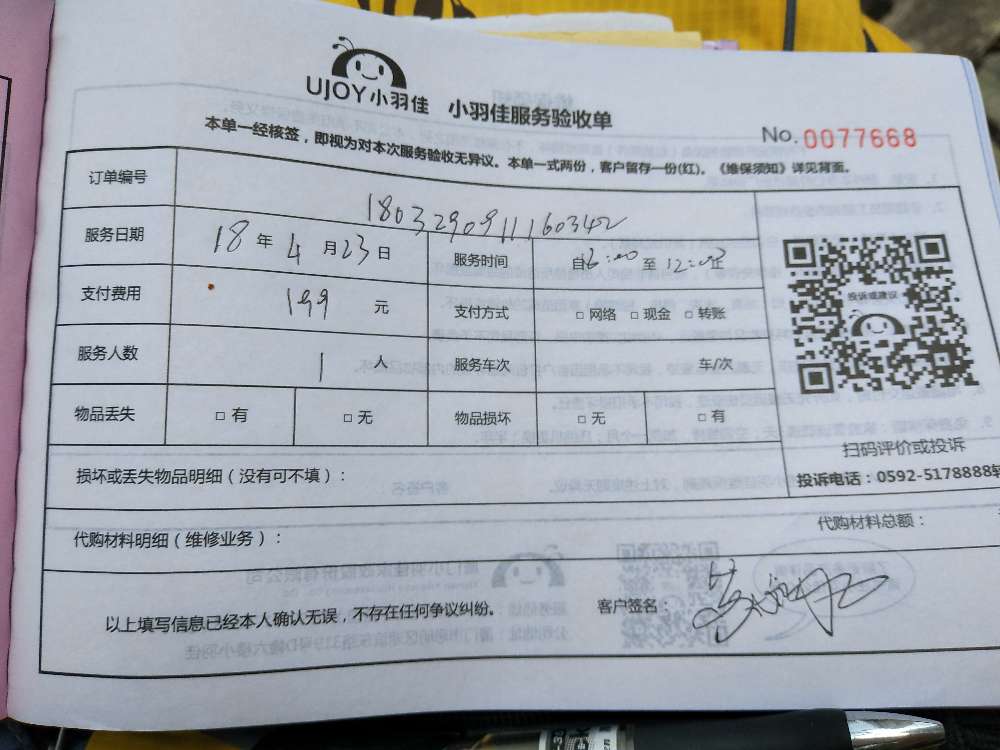 UJOY小羽佳 小羽佳服务验收单
No. 0077668
本单一经核签，即视为对本次服务验收无异议。本单一式两份，客户留存一份(红)。《维保须知》详见背面。
订单编号 1803290911160342
服务日期 18 年 4 月 23 日 服务时间 自 :00 至 12:00止
支付费用 199 元 支付方式 □ 网络 □ 现金 □ 转账
投诉或建议
服务人数 1 人 服务车次 车/次
物品丢失 □ 有 □ 无 物品损坏 □ 无 □ 有
扫码评价或投诉
投诉电话：0592-5178888转
损坏或丢失物品明细（没有可不填）：
代购材料明细（维修业务）： 代购材料总额：
以上填写信息已经本人确认无误，不存在任何争议纠纷。 客户签名：